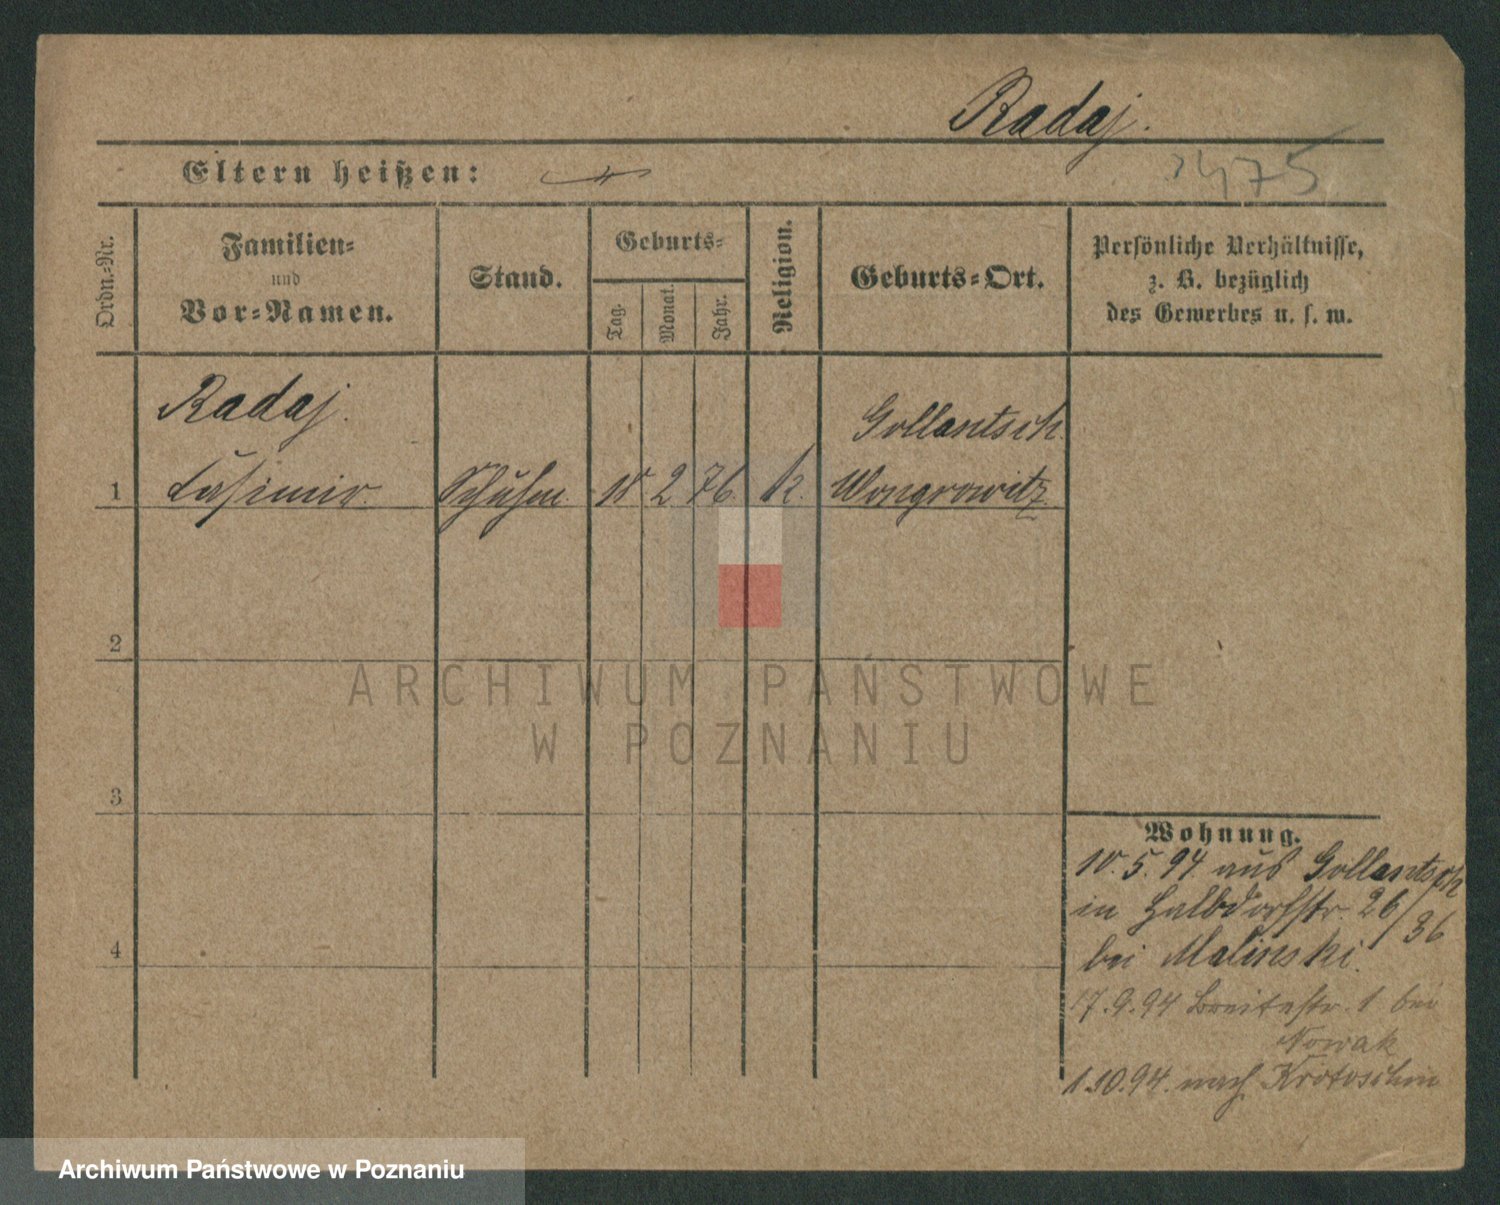 Radaj.
Eltern heißen:
3475
Ordn.-Nr.
Familien-
und
Vor-Namen.
Stand.
Geburts-
Tag.
Monat.
Jahr.
Religion.
Geburts-Ort.
Persönliche Verhältnisse,
z. B. bezüglich
des Gewerbes u. s. w.
Radaj.
Gollantsch
1 Casimir. Schuhm. 10 2 76. k. Wongrowitz
2
ARCHIWUM PAŃSTWOWE
W POZNANIU
3
4
Wohnung.
10.5.94. aus Gollantsch
in Halbdorfstr. 26/36
bei Malinski.
17.9.94 Breitestr. 1 bei
Nowak
1.10.94. nach Krotoschin
Archiwum Państwowe w Poznaniu